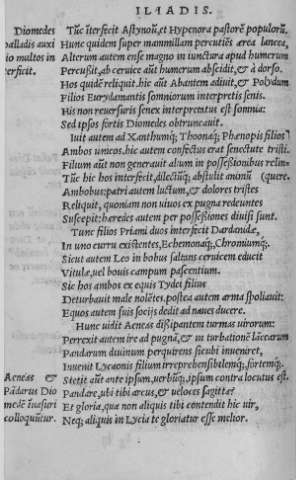 ILIADIS.
Diomedes
palladis auxi
lio multos in
terficit.
Tūc īterficit Astynoū, et Hypenora pastorē populorū,
Hunc quidem super mammillam percutiēs ærea lancea,
Alterum autem ense magno in iunctura apud humerum
Percußit, ab ceruice aūt humerum abscidit, & à dorso.
Hos quidē reliquit. hic aūt Abantem adiuit, & Polydum
Filios Eurydamantis somniorum interpretis senis.
His non reuersuris senex interpretatus est somnia:
Sed ipsos fortis Diomedes obtruncauit.
Iuit autem ad Xanthumq́; Thoonaq́; Phænopis filios
Ambos unicos. hic autem confectus erat senectute tristi.
Filium aūt non generauit alium in possessionibus relin-
Tūc hic hos interfecit, dilectūq́; abstulit animū (quere.
Ambobus: patri autem luctum, & dolores tristes
Reliquit, quoniam non uiuos ex pugna redeuntes
Suscepit: hæredes autem per posseßiones diuisi sunt.
Tunc filios Priami duos interfecit Dardanidæ,
In uno curru existentes, Echemonaq́;, Chromiumq́;.
Sicut autem Leo in bobus saltans ceruicem educit
Vitulæ, uel bouis campum pascentium.
Sic hos ambos ex equis Tydei filius
Deturbauit male nolētes, postea autem arma spoliauit:
Equos autem suis socijs dedit ad naues ducere.
Hunc uidit Aeneas dißipantem turmas uirorum:
Perrexit autem ire ad pugnā, & in turbationē lācearum
Pandarum diuinum perquirens sicubi inueniret,
Inuenit Lycaonis filium irreprehensiblemq́;, fortemq́;.
Aeneas &
Pādarus Dio
medē inuasuri
colloquūtur.
Stetit aūt ante ipsum, uerbūq́;, ipsum contra locutus est.
Pandare, ubi tibi arcus, & ueloces sagittæ?
Et gloria, quæ non aliquis tibi contendit hic uir,
Neq; aliquis in Lycia te gloriatur esse melior.